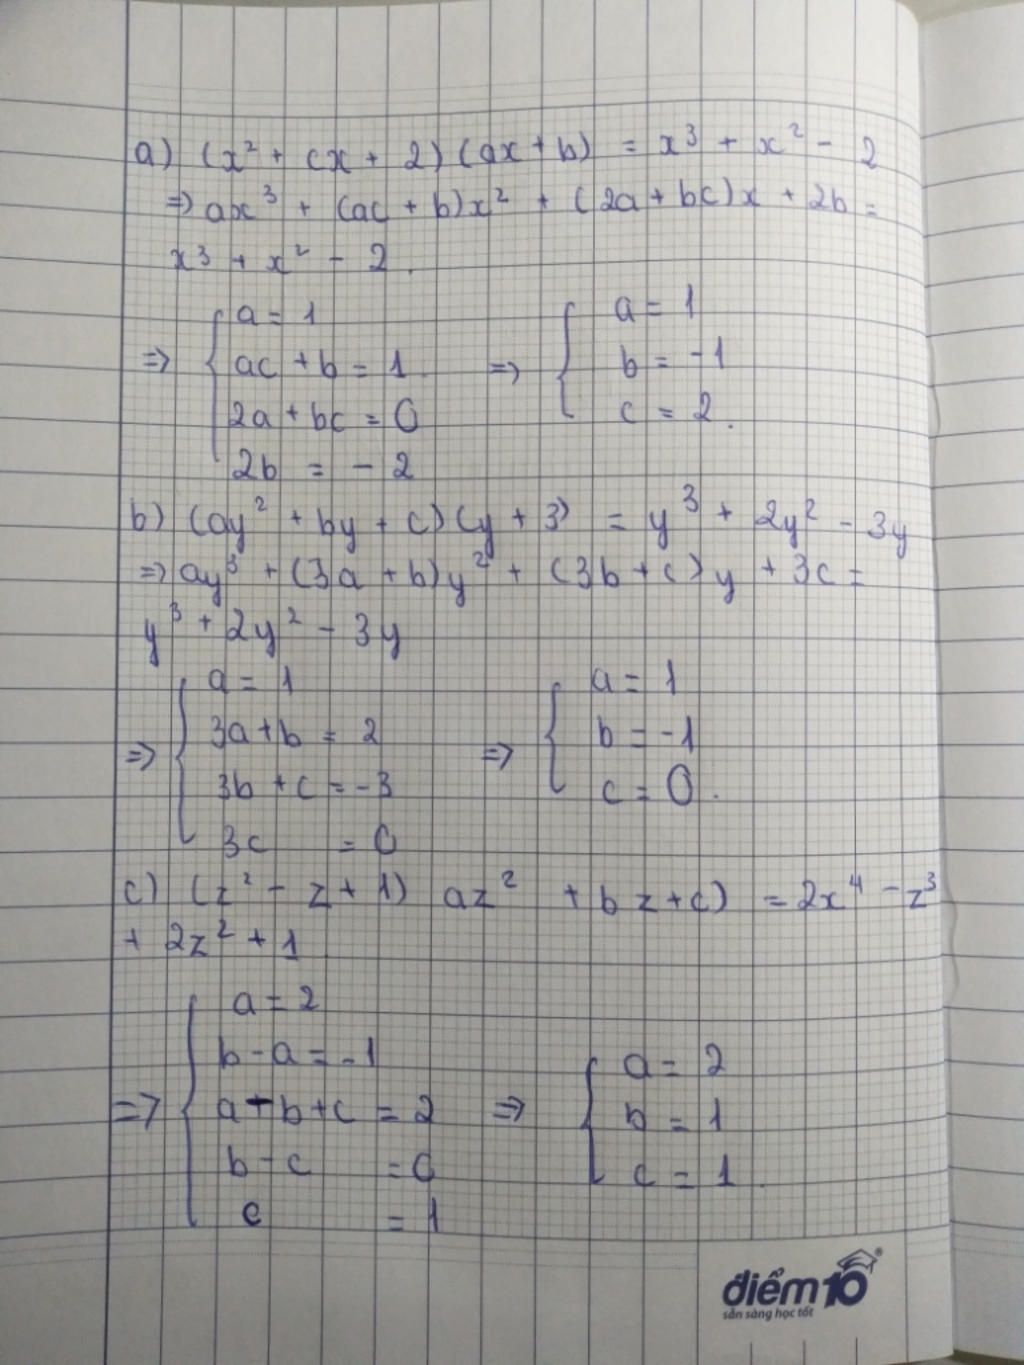 a) (x² + cx + 2)(ax + b) = x³ + x² - 2
=> ax³ + (ac + b)x² + (2a + bc)x + 2b =
x³ + x² - 2.
=> { a = 1
ac + b = 1
2a + bc = 0
2b = - 2
=> { a = 1
b = -1
c = 2.
b) (ay² + by + c)(y + 3) = y³ + 2y² - 3y
=> ay³ + (3a + b)y² + (3b + c)y + 3c =
y³ + 2y² - 3y
=> { a = 1
3a + b = 2
3b + c = -3
3c = 0
=> { a = 1
b = -1
c = 0.
c) (z² - z + 1) az² + bz + c) = 2x⁴ - z³
+ 2z² + 1
=> { a = 2
b - a = -1
a - b + c = 2
b - c = 0
c = 1
=> { a = 2
b = 1
c = 1.
điểm10
sẵn sàng học tốt